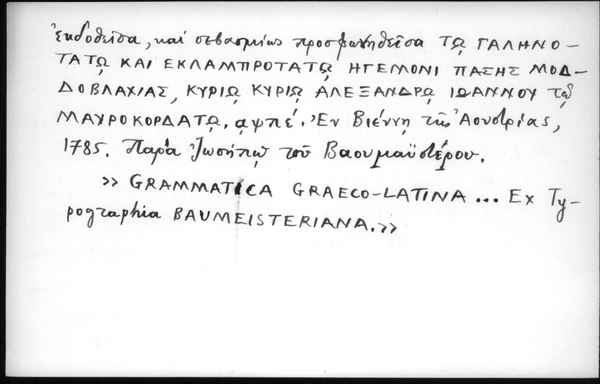 ἐκδοθεῖσα, καὶ σεβασμίως προσφωνηθεῖσα ΤΩ ΓΑΛΗΝΟ-
ΤΑΤΩ ΚΑΙ ΕΚΛΑΜΠΡΟΤΑΤΩ ΗΓΕΜΟΝΙ ΠΑΣΗΣ ΜΟΛ-
ΔΟΒΛΑΧΙΑΣ, ΚΥΡΙΩ ΚΥΡΙΩ ΑΛΕΞΑΝΔΡΩ ΙΩΑΝΝΟΥ τοῦ
ΜΑΥΡΟΚΟΡΔΑΤΩ. αψπέ. Ἐν Βιέννῃ τῆς Ἀουστρίας,
1785. Παρὰ Ἰωσήπῳ τοῦ Βαουμαϊστέρου.
»GRAMMATICA GRAECO-LATINA ... Ex Ty-
pographia BAUMEISTERIANA.»